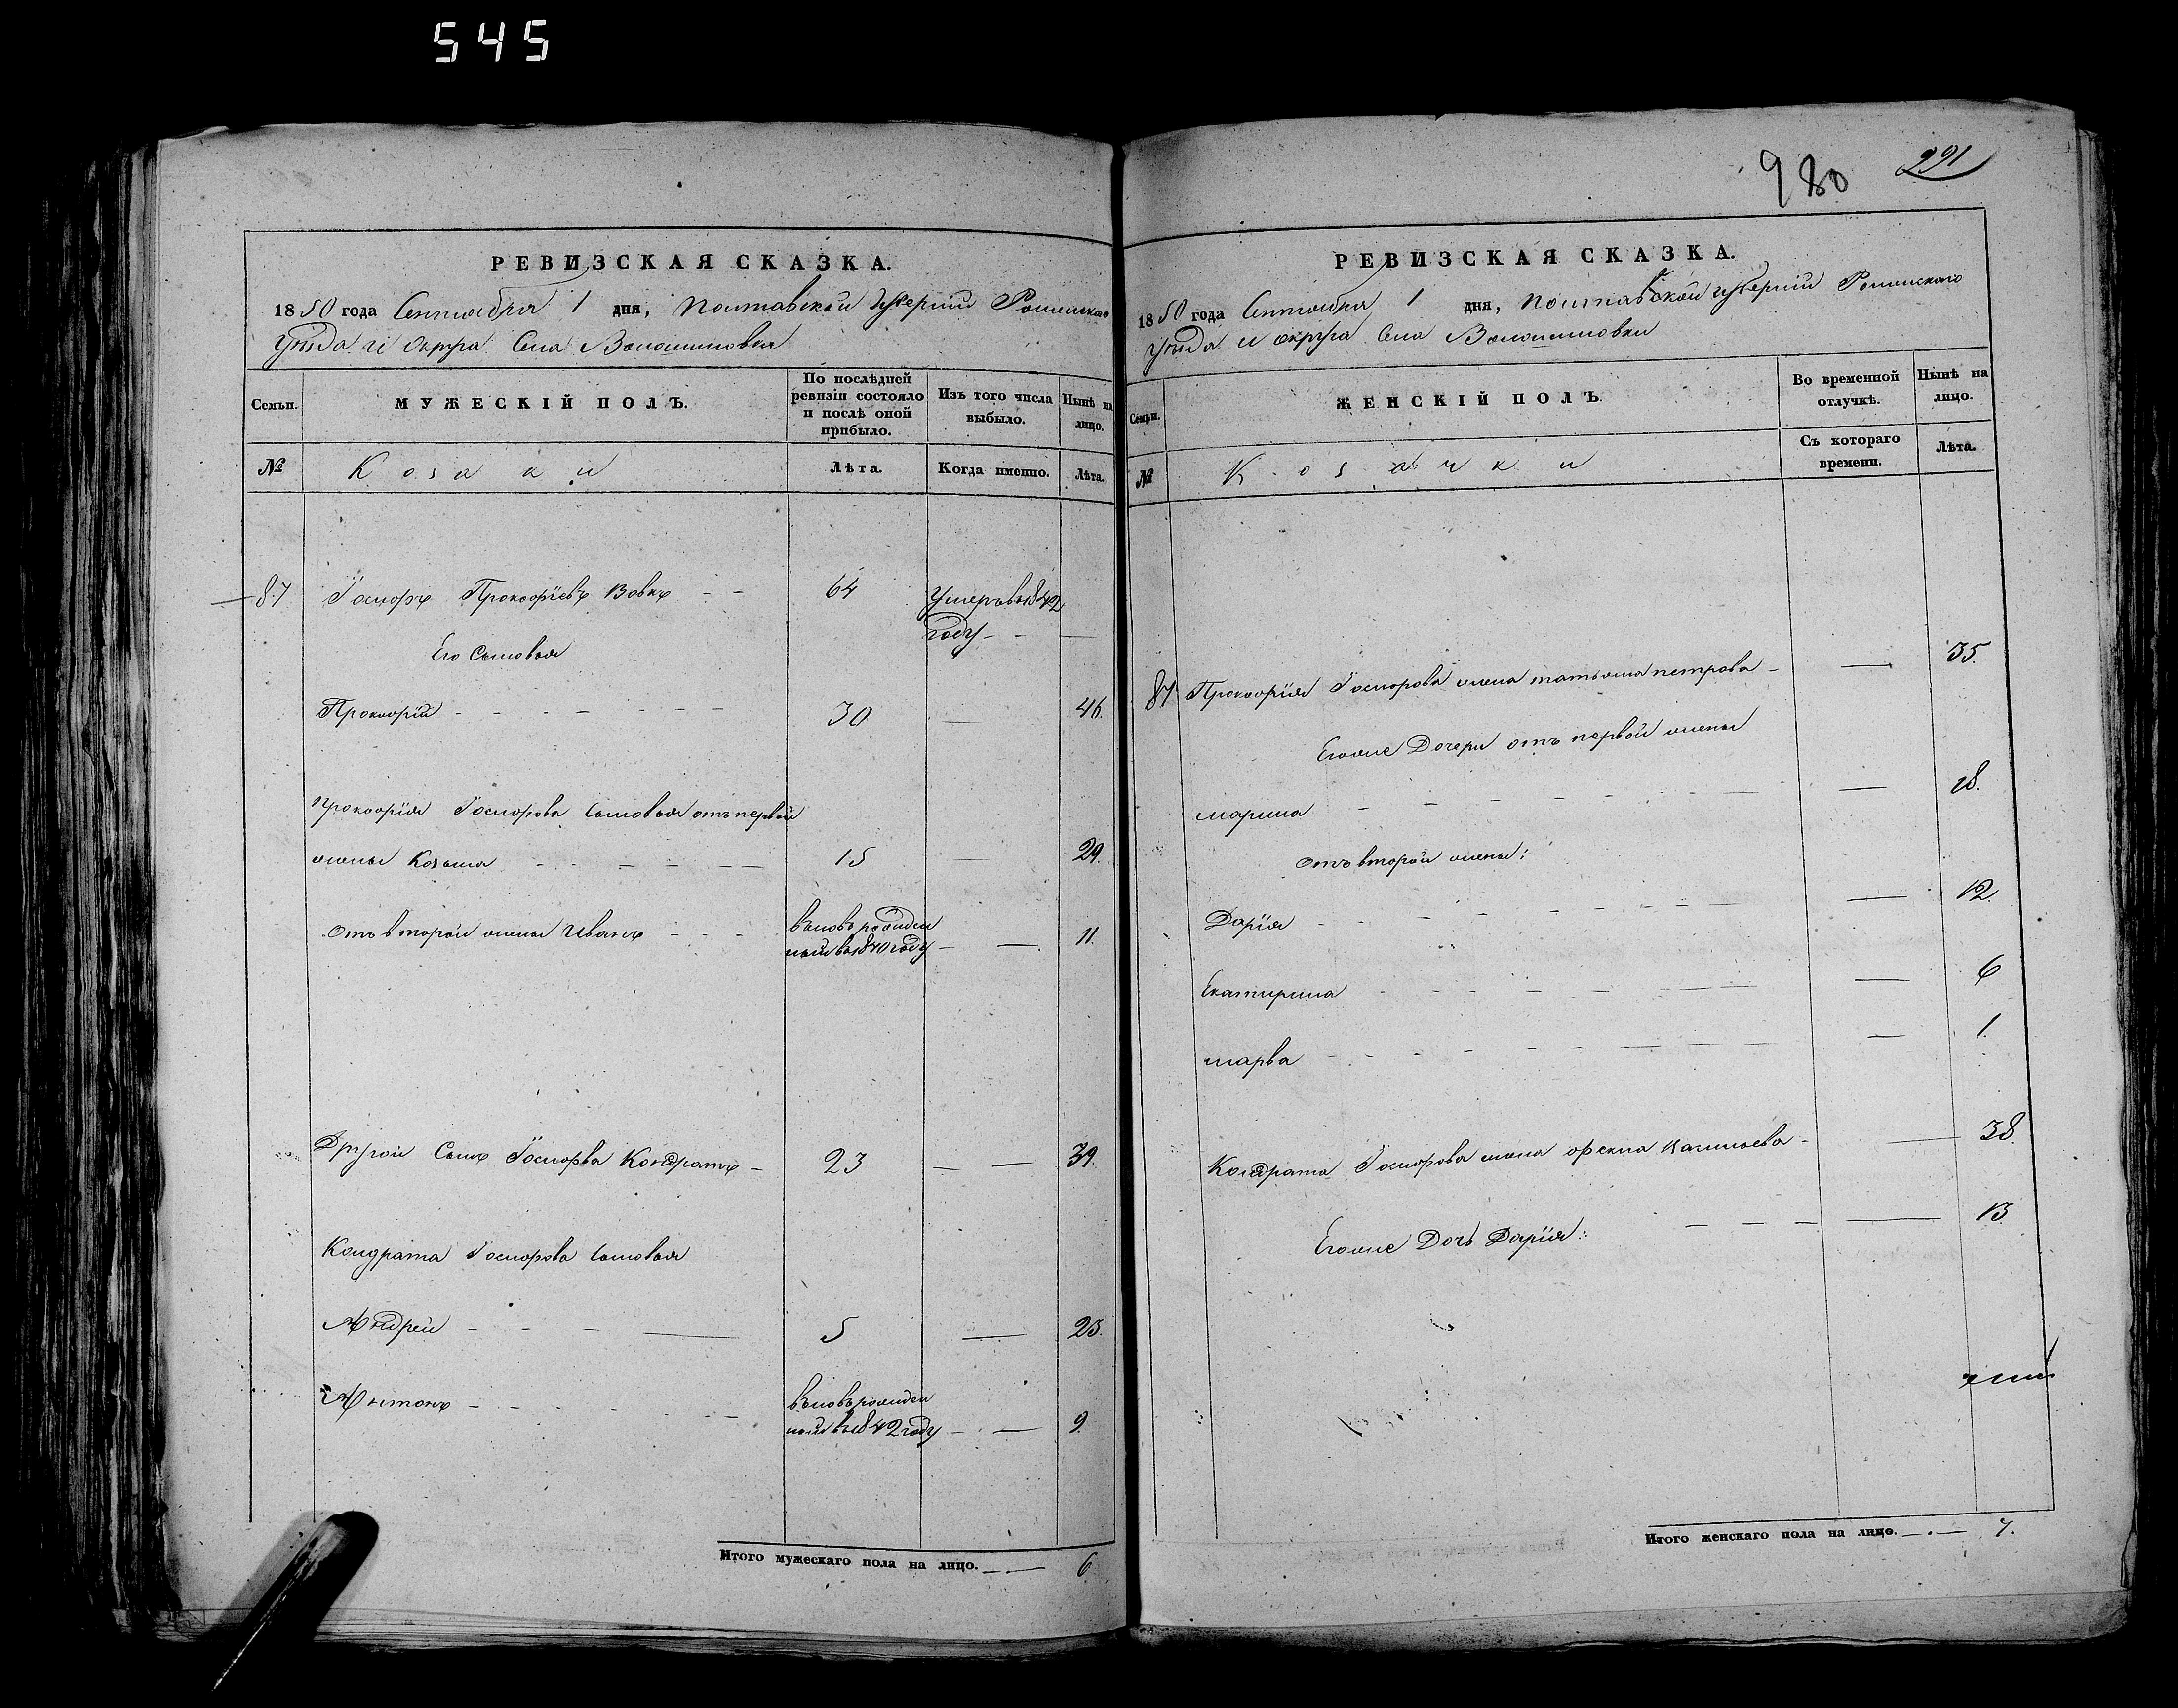 545
РЕВИЗСКАЯ СКАЗКА.
1850 года Сентября 1 дня, Полтавской губерніи Роменскаго
уѣзда и округа Села Волошиновки
Семьи. МУЖЕСКІЙ ПОЛЪ. По послѣдней ревизіи состояло и послѣ оной прибыло. Изъ того числа выбыло. Нынѣ на лицо.
№ Козаки Лѣта. Когда именно. Лѣта.
87 Прокофіевъ Вовкъ 64 Умеръ въ 1842
году
Его Сыновья
Прокофій 30 46.
Прокофія сыновья отъ первой
жены Козьма 15 29.
отъ второй жены Иванъ вновь рожден
ный въ 1840 году 11.
Другой Сынъ Кондратъ 23 39.
Кондрата сыновья
Андрей 5 23.
Антонъ вновь рожден
ный въ 1842 году 9.
Итого мужескаго пола на лицо. 6
980 291
РЕВИЗСКАЯ СКАЗКА.
1850 года Сентября 1 дня, Полтавской губерніи Роменскаго
уѣзда и округа Села Волошиновки
Семьи. ЖЕНСКІЙ ПОЛЪ. Во временной отлучкѣ. Нынѣ на лицо.
№ Козачки Съ котораго времени. Лѣта.
87 Прокофія жена татьяна петрова 35.
Его же Дочери отъ первой жены
марина 18.
отъ второй жены:
Дарія 12.
Екатирина 6
марва 1.
Кондрата жена Васильева 38.
Его же Дочь Дарія: 13
Итого женскаго пола на лицо. 7.